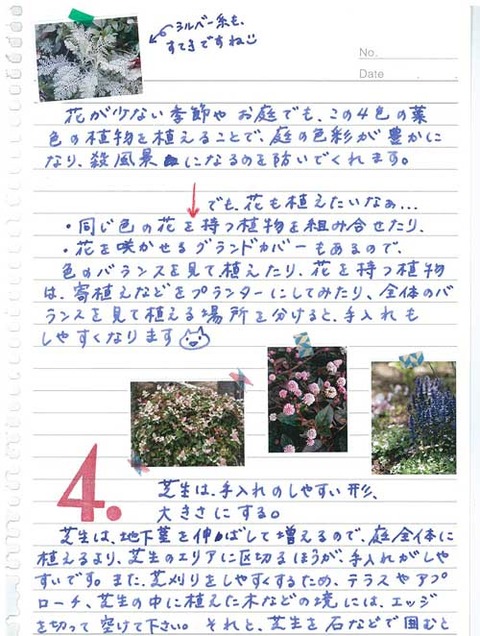 シルバー系も、
すてきですね
No.
Date
花が少ない季節や お庭でも、この4色の葉
色の植物を植えることで、庭の色彩が豊かに
なり、殺風景 になるのを防いでくれます。
でも、花も植えたいなぁ…
・同じ色の花を持つ植物を組み合せたり、
・花を咲かせるグランドカバーもあるので、
色のバランスを見て植えたり、花を持つ植物
は、寄植えなどをプランターにしてみたり、全体のバ
ランスを見て植える場所を分けると、手入れも
しやすくなります
4.
芝生は、手入れのしやすい形、
大きさにする。
芝生は、地下茎を伸ばして増えるので、庭全体に
植えるより、芝生のエリアに区切るほうが、手入れがしや
すいです。また、芝刈りをしやすくするため、テラスやアプ
ローチ、芝生の中に植えた木などの境には、エッジ
を切って空けて下さい。それと、芝生を石などで囲むと